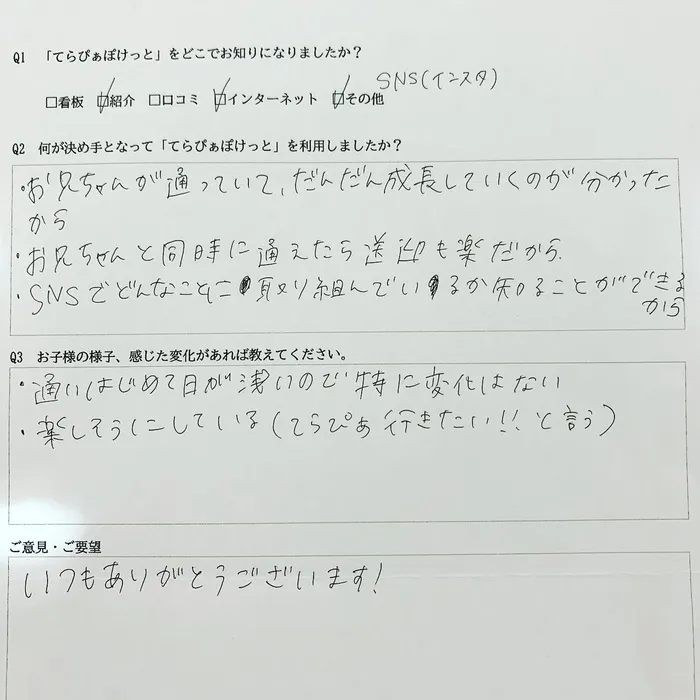 Q1 「てらぴぁぽけっと」をどこでお知りになりましたか？
SNS(インスタ)
□看板 ☑紹介 □口コミ ☑インターネット ☑その他
Q2 何が決め手となって「てらぴぁぽけっと」を利用しましたか？
・お兄ちゃんが通っていて、だんだん成長していくのが分かった
から
・お兄ちゃんと同時に通えたら送迎も楽だから.
・SNSでどんなことに取り組んでいるか知ることができる
から
Q3 お子様の様子、感じた変化があれば教えてください。
・通いはじめて日が浅いので特に変化はない
・楽しそうにしている(てらぴぁ行きたい!!と言う)
ご意見・ご要望
いつもありがとうございます!